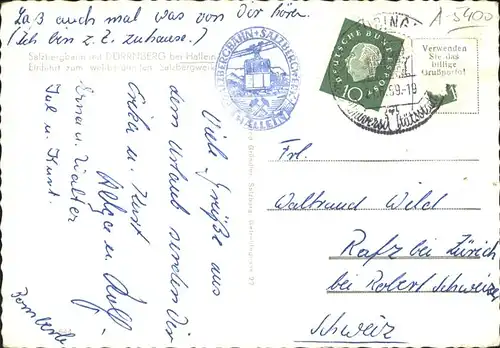 Laß auch mal was von Dir hören.
(Ich bin z. Z. zuhause.)
A-5400
Salzbergbahn mit DÜRRNBERG bei Hallein
Einfahrt zum weltberühmten Salzbergwerk
SALZBERGBAHN + SALZBERGWERK
HALLEIN
DEUTSCHE BUNDESPOST
10
59-19
Verwenden
Sie das
billige
Großporto!
Viele Grüße aus
dem Urlaub senden Dir
Erika u. Kurt
Helga u. Rolf
Erna u. Walter
Ilse u. Kurt.
Frl.
Waltraud Wild
Rafz bei Zürich
bei Robert Schweizer
Schweiz